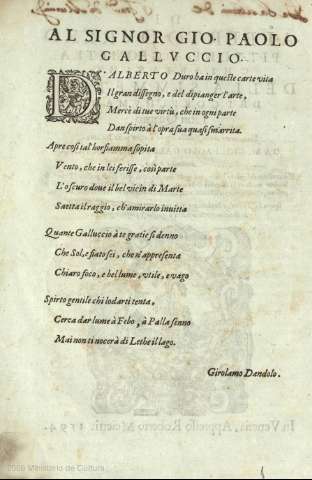 AL SIGNOR GIO. PAOLO
GALLVCCIO.
D'ALBERTO Duro ha in queste carte vita
Il gran dissegno, e del dipianger l'arte,
Mercè di tue virtù, che in ogni parte
Dan spirto à l'opra sua quasi smarrita.
Apre così tal hor fiamma sopita
Vento, che in lei ferisse, così parte
L'oscuro doue il bel vicin di Marte
Saetta il raggio, ch'amirarlo inuitta
Quante Galluccio à te gratie si denno
Che Sol, e fiato sei, che n'appresenta
Chiaro foco, e bel lume, vtile, e vago
Spirto gentile chi lodarti tenta,
Cerca dar lume à Febo, à Palla senno
Mai non ti nocerà di Lethe il lago.
Girolamo Dandolo.
In Venetia, Appresso Roberto Meietti. 1594.
2006 Ministerio de Cultura